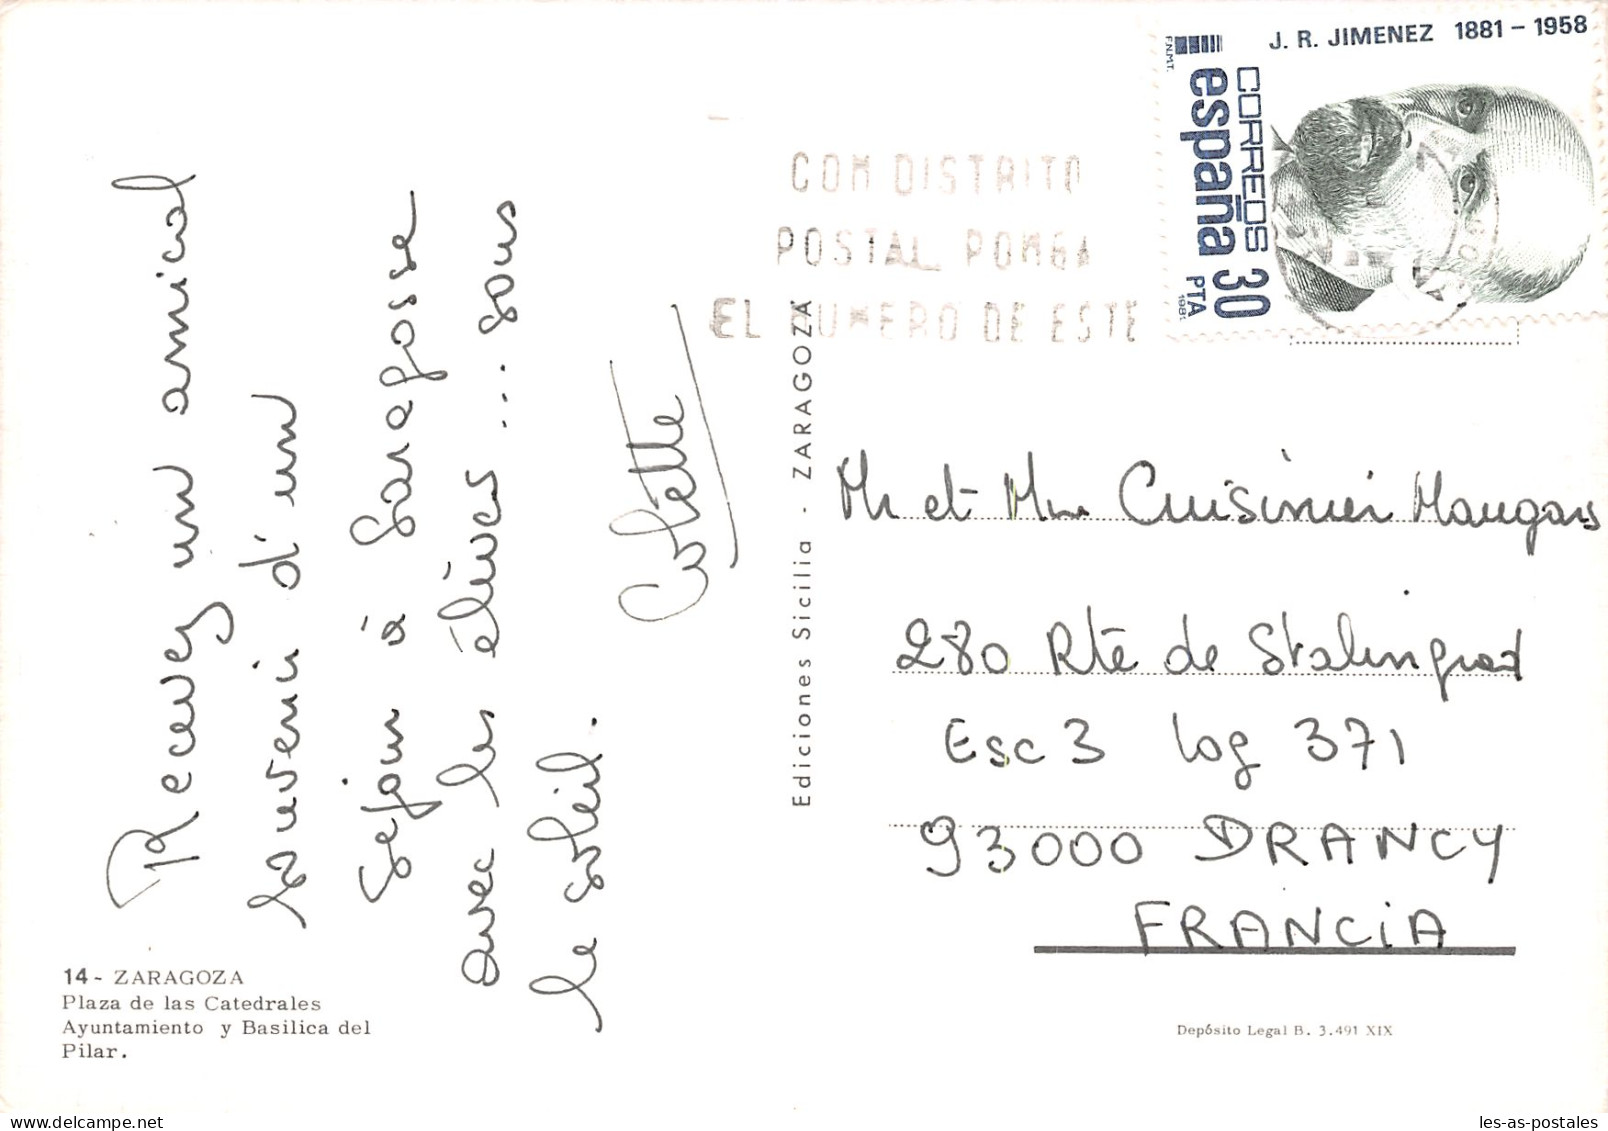 J. R. JIMENEZ 1881 - 1958
CORREOS
españa 30
PTA
1981
F.N.M.T.
CON DISTRITO
POSTAL PONGA
EL NUMERO DE ESTE
Recevez un amical
souvenir d'un
séjour à Saragosse
avec les élèves ... sous
le soleil.
Colette
Ediciones Sicilia - ZARAGOZA
Mr et Mme Cuisinier Maugars
280 Rte de Stalingrad
Esc 3 log 371
93000 DRANCY
FRANCIA
14 - ZARAGOZA
Plaza de las Catedrales
Ayuntamiento y Basilica del
Pilar.
Depósito Legal B. 3.491 XIX
les-as-postales